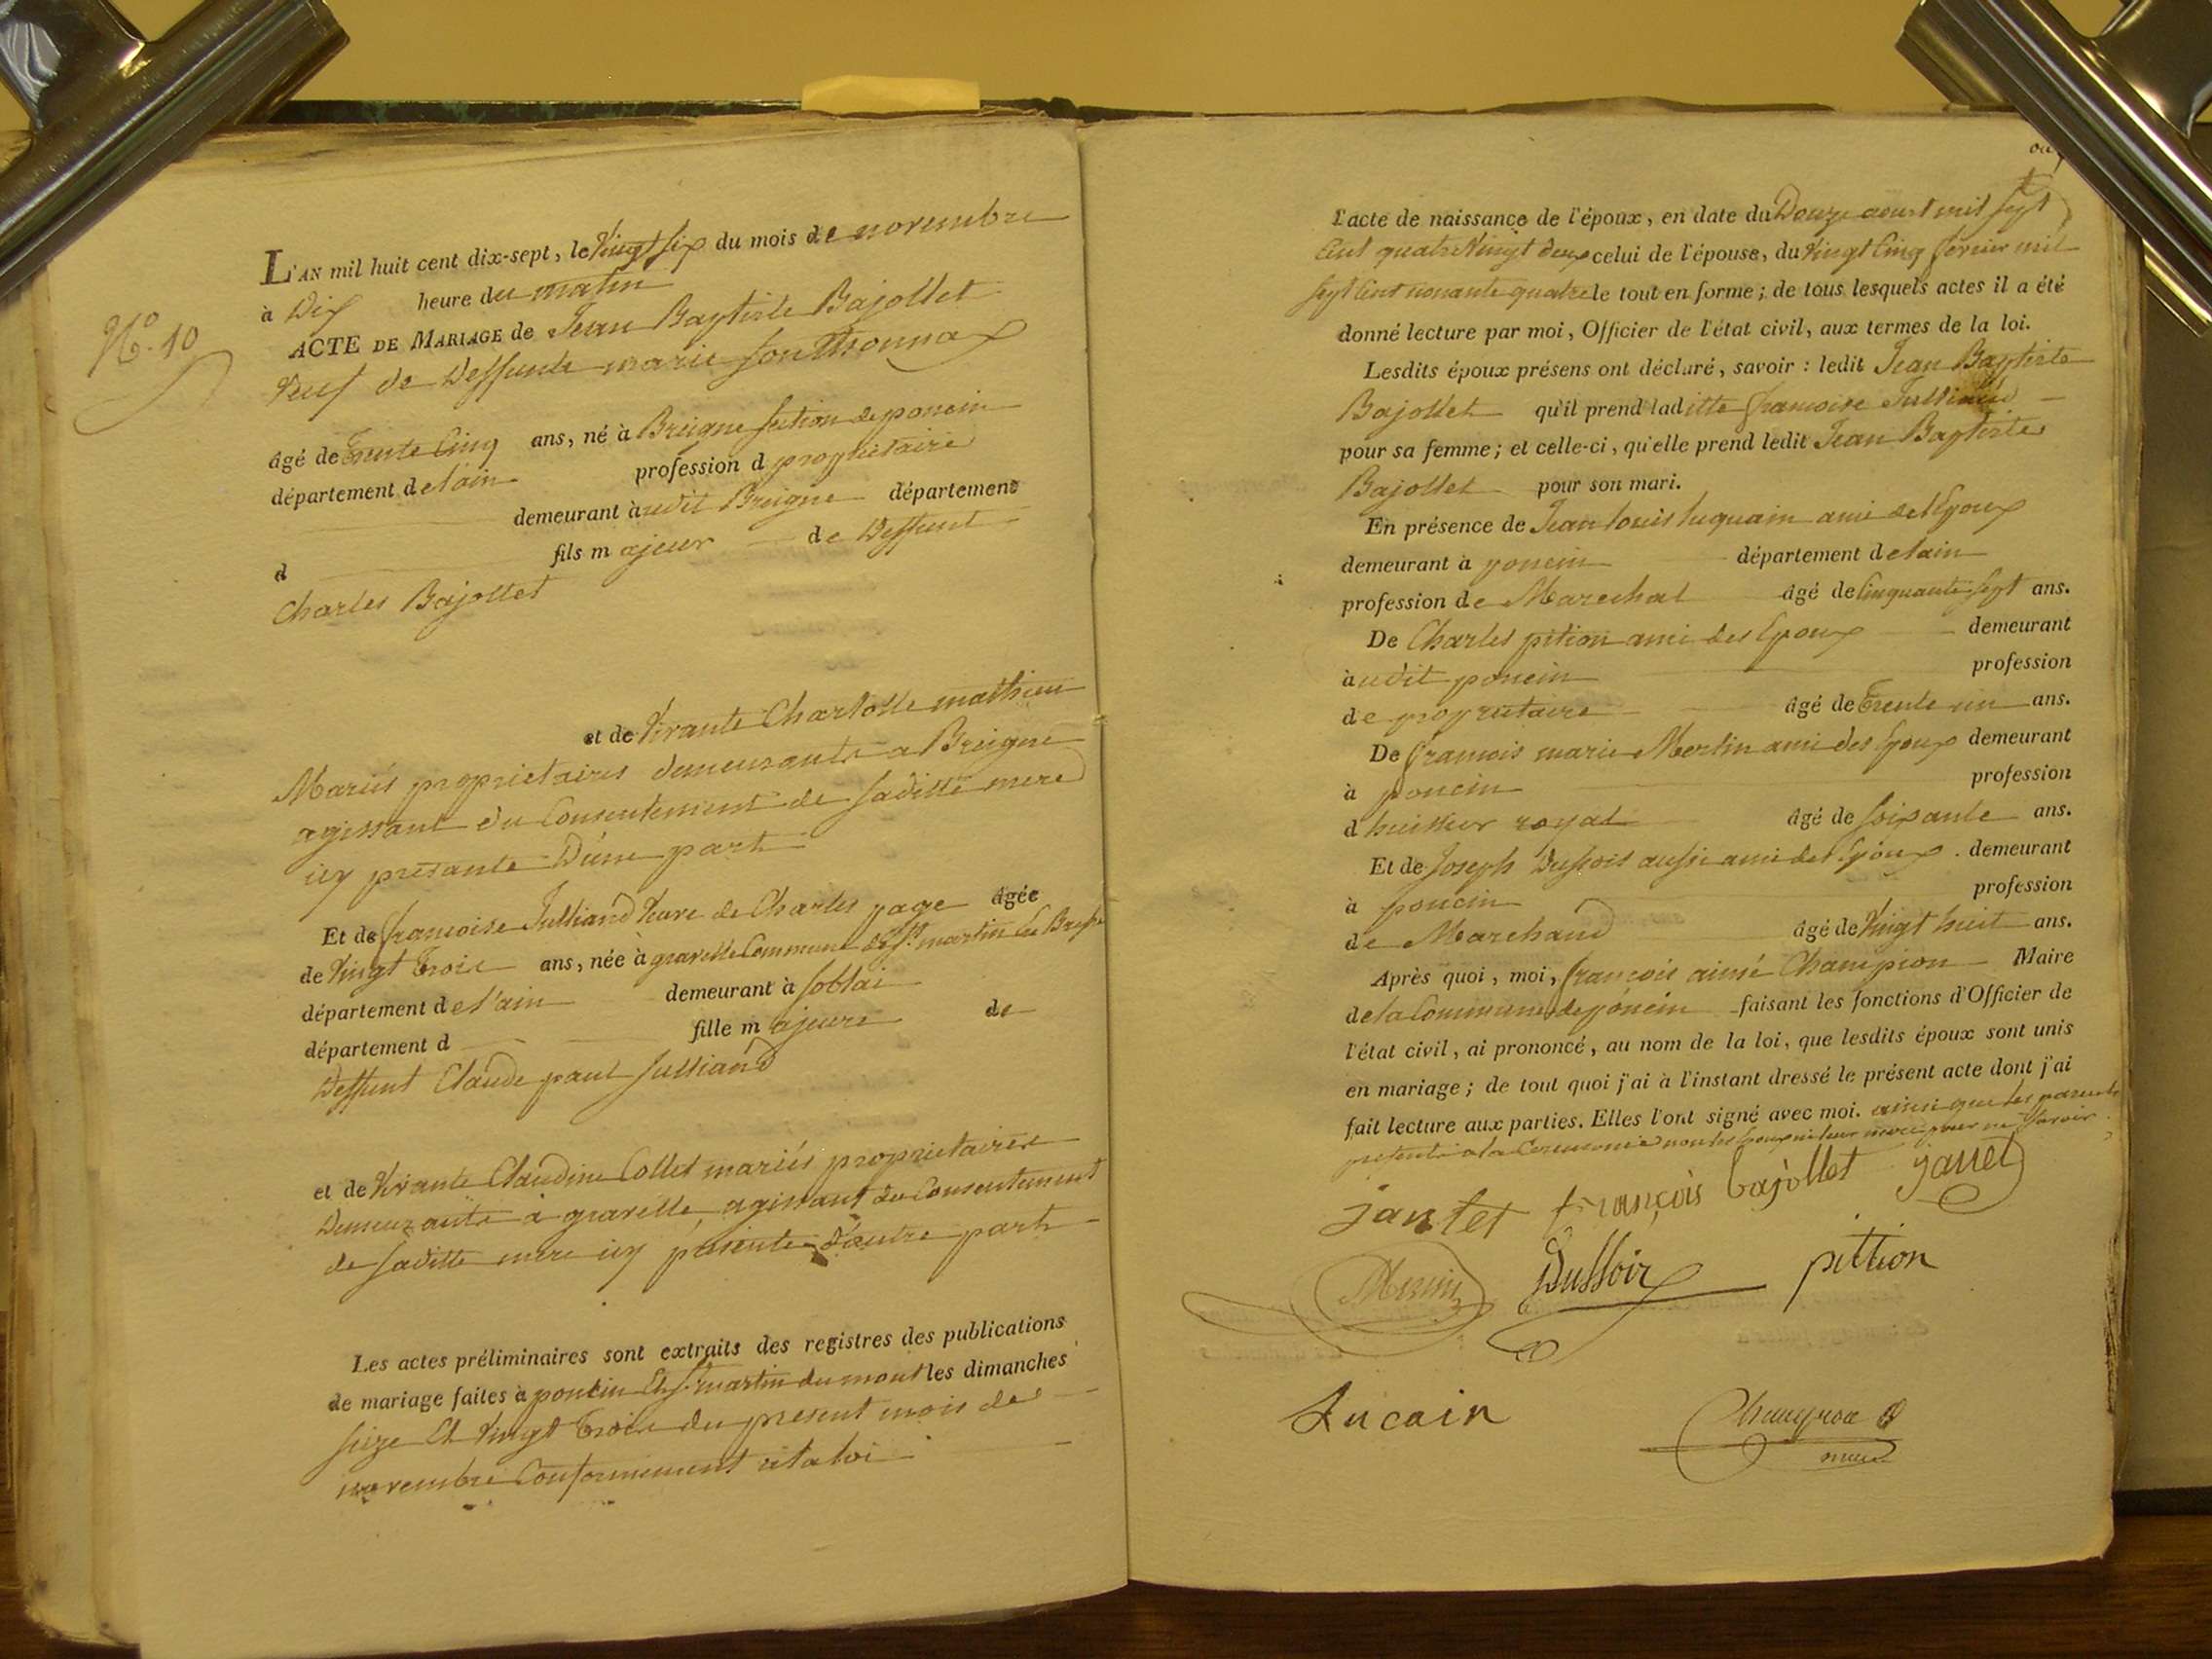 N.º 10
L'AN mil huit cent dix-sept, le Vingt six du mois de novembre
à Dix heure du matin
ACTE DE MARIAGE de Jean Baptiste Bajollet
Veuf de Deffunte marie Sonthonnax
âgé de Trente Cinq ans, né à Breigne section de poncin
département de lain profession d proprietaire
demeurant à udit Breigne département
d fils majeur de Deffunt
Charles Bajollet
et de Vivante Charlotte mathieu
Mariés proprietaires demeurants a Breigne
agissant du Consentement de saditte mere
icy presante D'une part
Et de francoise Julliand Veuve de Charles page âgée
de Vingt Trois ans, née à gravelle Commune de St. martin En Bresse
département de l'ain demeurant à soblai
département d fille majeure de
Deffunt Claude paul Julliand
et de Vivante Claudine Collet mariés proprietaires
Demeurants à gravelle, agissant du Consentement
de saditte mere icy presente D'autre part
Les actes préliminaires sont extraits des registres des publications
de mariage faites à poncin Et St. martin du mont les dimanches
seize Et Vingt Trois du present mois de
novembre Conformement a la loi
ou
l'acte de naissance de l'époux, en date du Douze aoust mil sept
Cent quatre Vingt deux celui de l'épouse, du Vingt Cinq fevrier mil
sept Cent nonante quatre le tout en forme; de tous lesquels actes il a été
donné lecture par moi, Officier de l'état civil, aux termes de la loi.
Lesdits époux présens ont déclaré, savoir: ledit Jean Baptiste
Bajollet qu'il prend laditte francoise Julliand
pour sa femme; et celle-ci, qu'elle prend ledit Jean Baptiste
Bajollet pour son mari.
En présence de Jean louis luquain ami de l'Epoux
demeurant à poncin département de lain
profession de Marechal âgé de Cinquante sept ans.
De Charles pition ami des Epoux demeurant
à udit poncin profession
de proprietaire âgé de Trente un ans.
De francois marie Merlin ami des Epoux demeurant
à poncin profession
d huissier royal âgé de soixante ans.
Et de Joseph Dussois aussi ami des Epoux demeurant
à poncin profession
de Marchand âgé de Vingt huit ans.
Après quoi, moi, francois aimé Champion Maire
de la Commune de poncin faisant les fonctions d'Officier de
l'état civil, ai prononcé, au nom de la loi, que lesdits époux sont unis
en mariage; de tout quoi j'ai à l'instant dressé le présent acte dont j'ai
fait lecture aux parties. Elles l'ont signé avec moi. ainsi que les parents
présents a la Ceremonie non les Epoux ni leur mere pour ne savoir
jantet françois bajollet
Dussoir pittion
Lucain